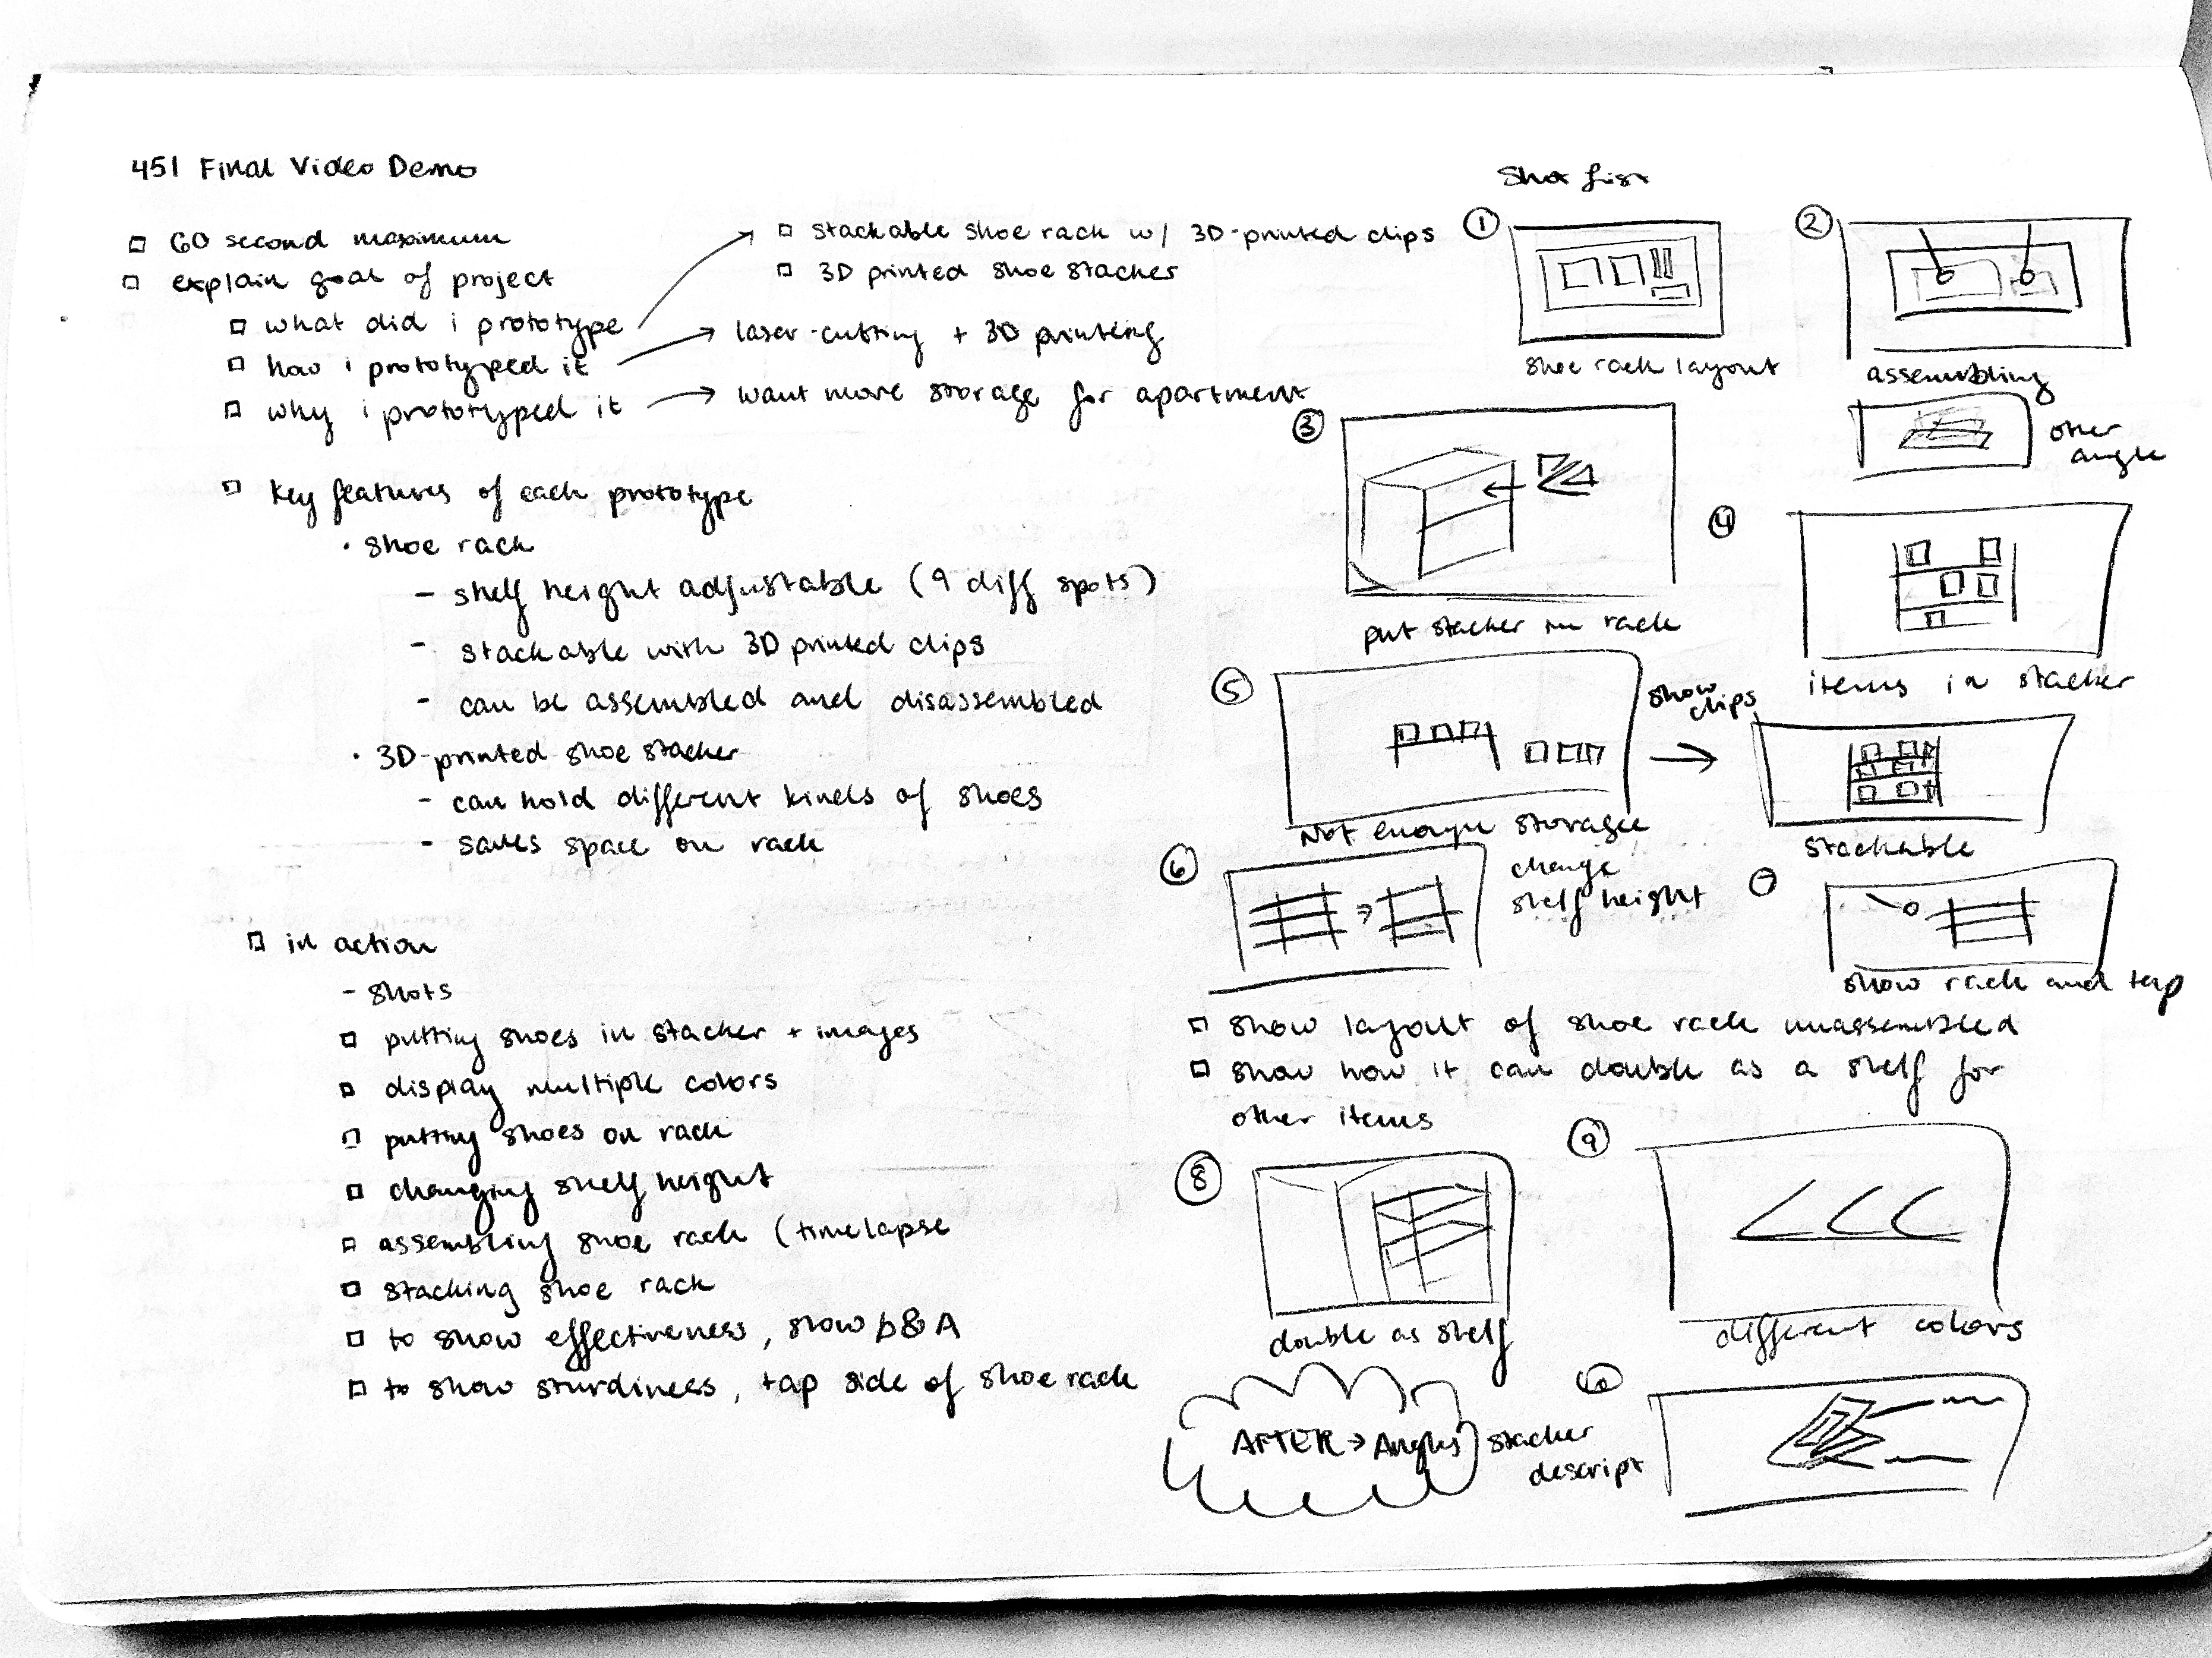 451 Final Video Demo
60 second maximum
explain goal of project
what did i prototype
stackable shoe rack w/ 3D-printed clips
3D printed shoe stacker
how i prototyped it
laser-cutting + 3D printing
why i prototyped it
want more storage for apartment
key features of each prototype
· shoe rack
- shelf height adjustable (9 diff spots)
- stackable with 3D printed clips
- can be assembled and disassembled
· 3D-printed shoe stacker
- can hold different kinds of shoes
- saves space on rack
in action
- shots
putting shoes in stacker + images
display multiple colors
putting shoes on rack
changing shelf height
assembling shoe rack (timelapse
stacking shoe rack
to show effectiveness, show b&A
to show sturdiness, tap side of shoe rack
Shot List
1
shoe rack layout
2
assembling
other
angle
3
put stacker in rack
4
items in stacker
5
Not enough storage
show
clips
stackable
6
change
shelf height
7
show rack and tap
show layout of shoe rack unassembled
show how it can double as a shelf for
other items
8
double as shelf
9
different colors
AFTER → Angles
10
stacker
descript